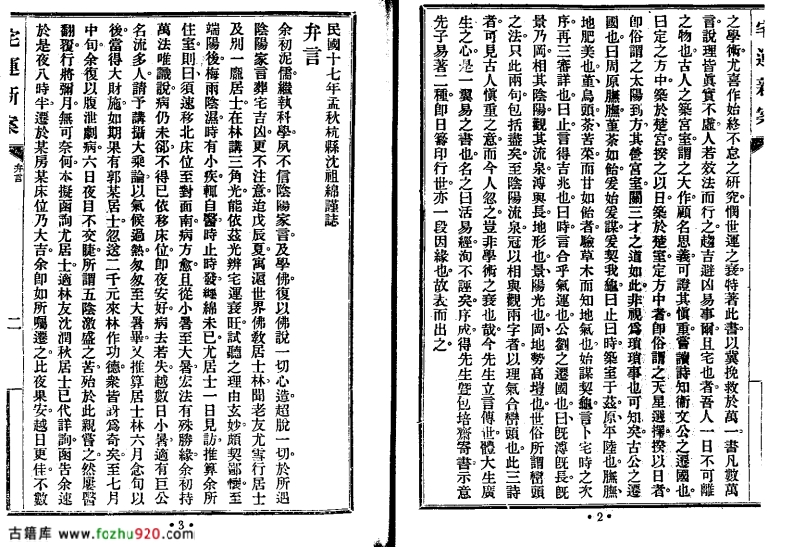 宅運新案
之學術尤喜作始終不怠之研究憫世運之衰特著此書以冀挽救於萬一書凡數萬
言說理皆眞實不虛人若效法而行之趨吉避凶易事爾且宅也者吾人一日不可離
之物也古人之築宮室謂之大作顧名思義可證其愼重嘗讀詩知衛文公之遷國也
曰定之方中築於楚宮揆之以日築於楚室定方中者卽俗謂之天星選擇揆以日者
卽俗謂之太陽到方其營宮室關三才之道如此非視爲瑣瑣事也可知矣古公之遷
國也曰周原膴膴菫荼如飴爰始爰謀爰契我龜曰止曰時築室于茲原平陸也膴膴
地肥美也菫烏頭荼苦菜而甘如飴者驗草木而知地氣也始謀契龜言卜宅時之次
序再三審詳也曰止言得吉兆也曰時言合乎氣運也公劉之遷國也曰旣溥旣長旣
景乃岡相其陰陽觀其流泉溥與長地形也景陽光也岡地勢高塏也世俗所謂巒頭
之法只此兩句包括盡矣至陰陽流泉冠以相與觀兩字者以理氣合巒頭也此三詩
者可見古人愼重之意而今人忽之豈非學術之衰也哉今先生立言傳世體大生廣
生之心是一翼易之書也名之曰活易經洵不誣矣序成得先生曁包培齋寄書示意
先子易著二種卽日籌印行世亦一段因緣也故表而出之
2
民國十七年孟秋杭縣沈祖緜謹誌
弁言
余初泥儒繼執科學夙不信陰陽家言及學佛復以佛說一切心造超脫一切於所遇
陰陽家言葬宅吉凶更不注意迨戊辰夏寓滬世界佛敎居士林聞老友尤雪行居士
及別一龐居士在林講三角光能依茲光辨宅運衰旺試聽之理由玄妙頗契鄙懷至
端陽後梅雨陰濕時有小疾輒自醫時止時發纏綿未已尤居士一日見訪推算余所
住室則曰須速移北床位至對面南病方愈且從小暑至大暑宏法有殊勝緣余初持
萬法唯識說病仍未卻不得已依移床位卽夜安好病去若失越數日小暑適有巨公
名流多人請予講攝大乘論以氣候過熱匆匆至大暑畢又推算居士林六月念旬以
後當得大財施如期果有郭某居士忽送二千元來林作功德衆皆訝爲奇矣至七月
中旬余復以腹泄劇病六日夜目不交睫所謂五陰激盛之苦殆於此親嘗之然屢醫
翻覆行將彌月無可奈何本擬函詢尤居士適林友沈潤秋居士已代詳詢函告余速
於是夜八時半遷於某房某床位乃大吉余卽如所囑遷之比夜果安越日更佳不數
宅運新案
弁言
二
3
古籍库 www.fozhu920.com